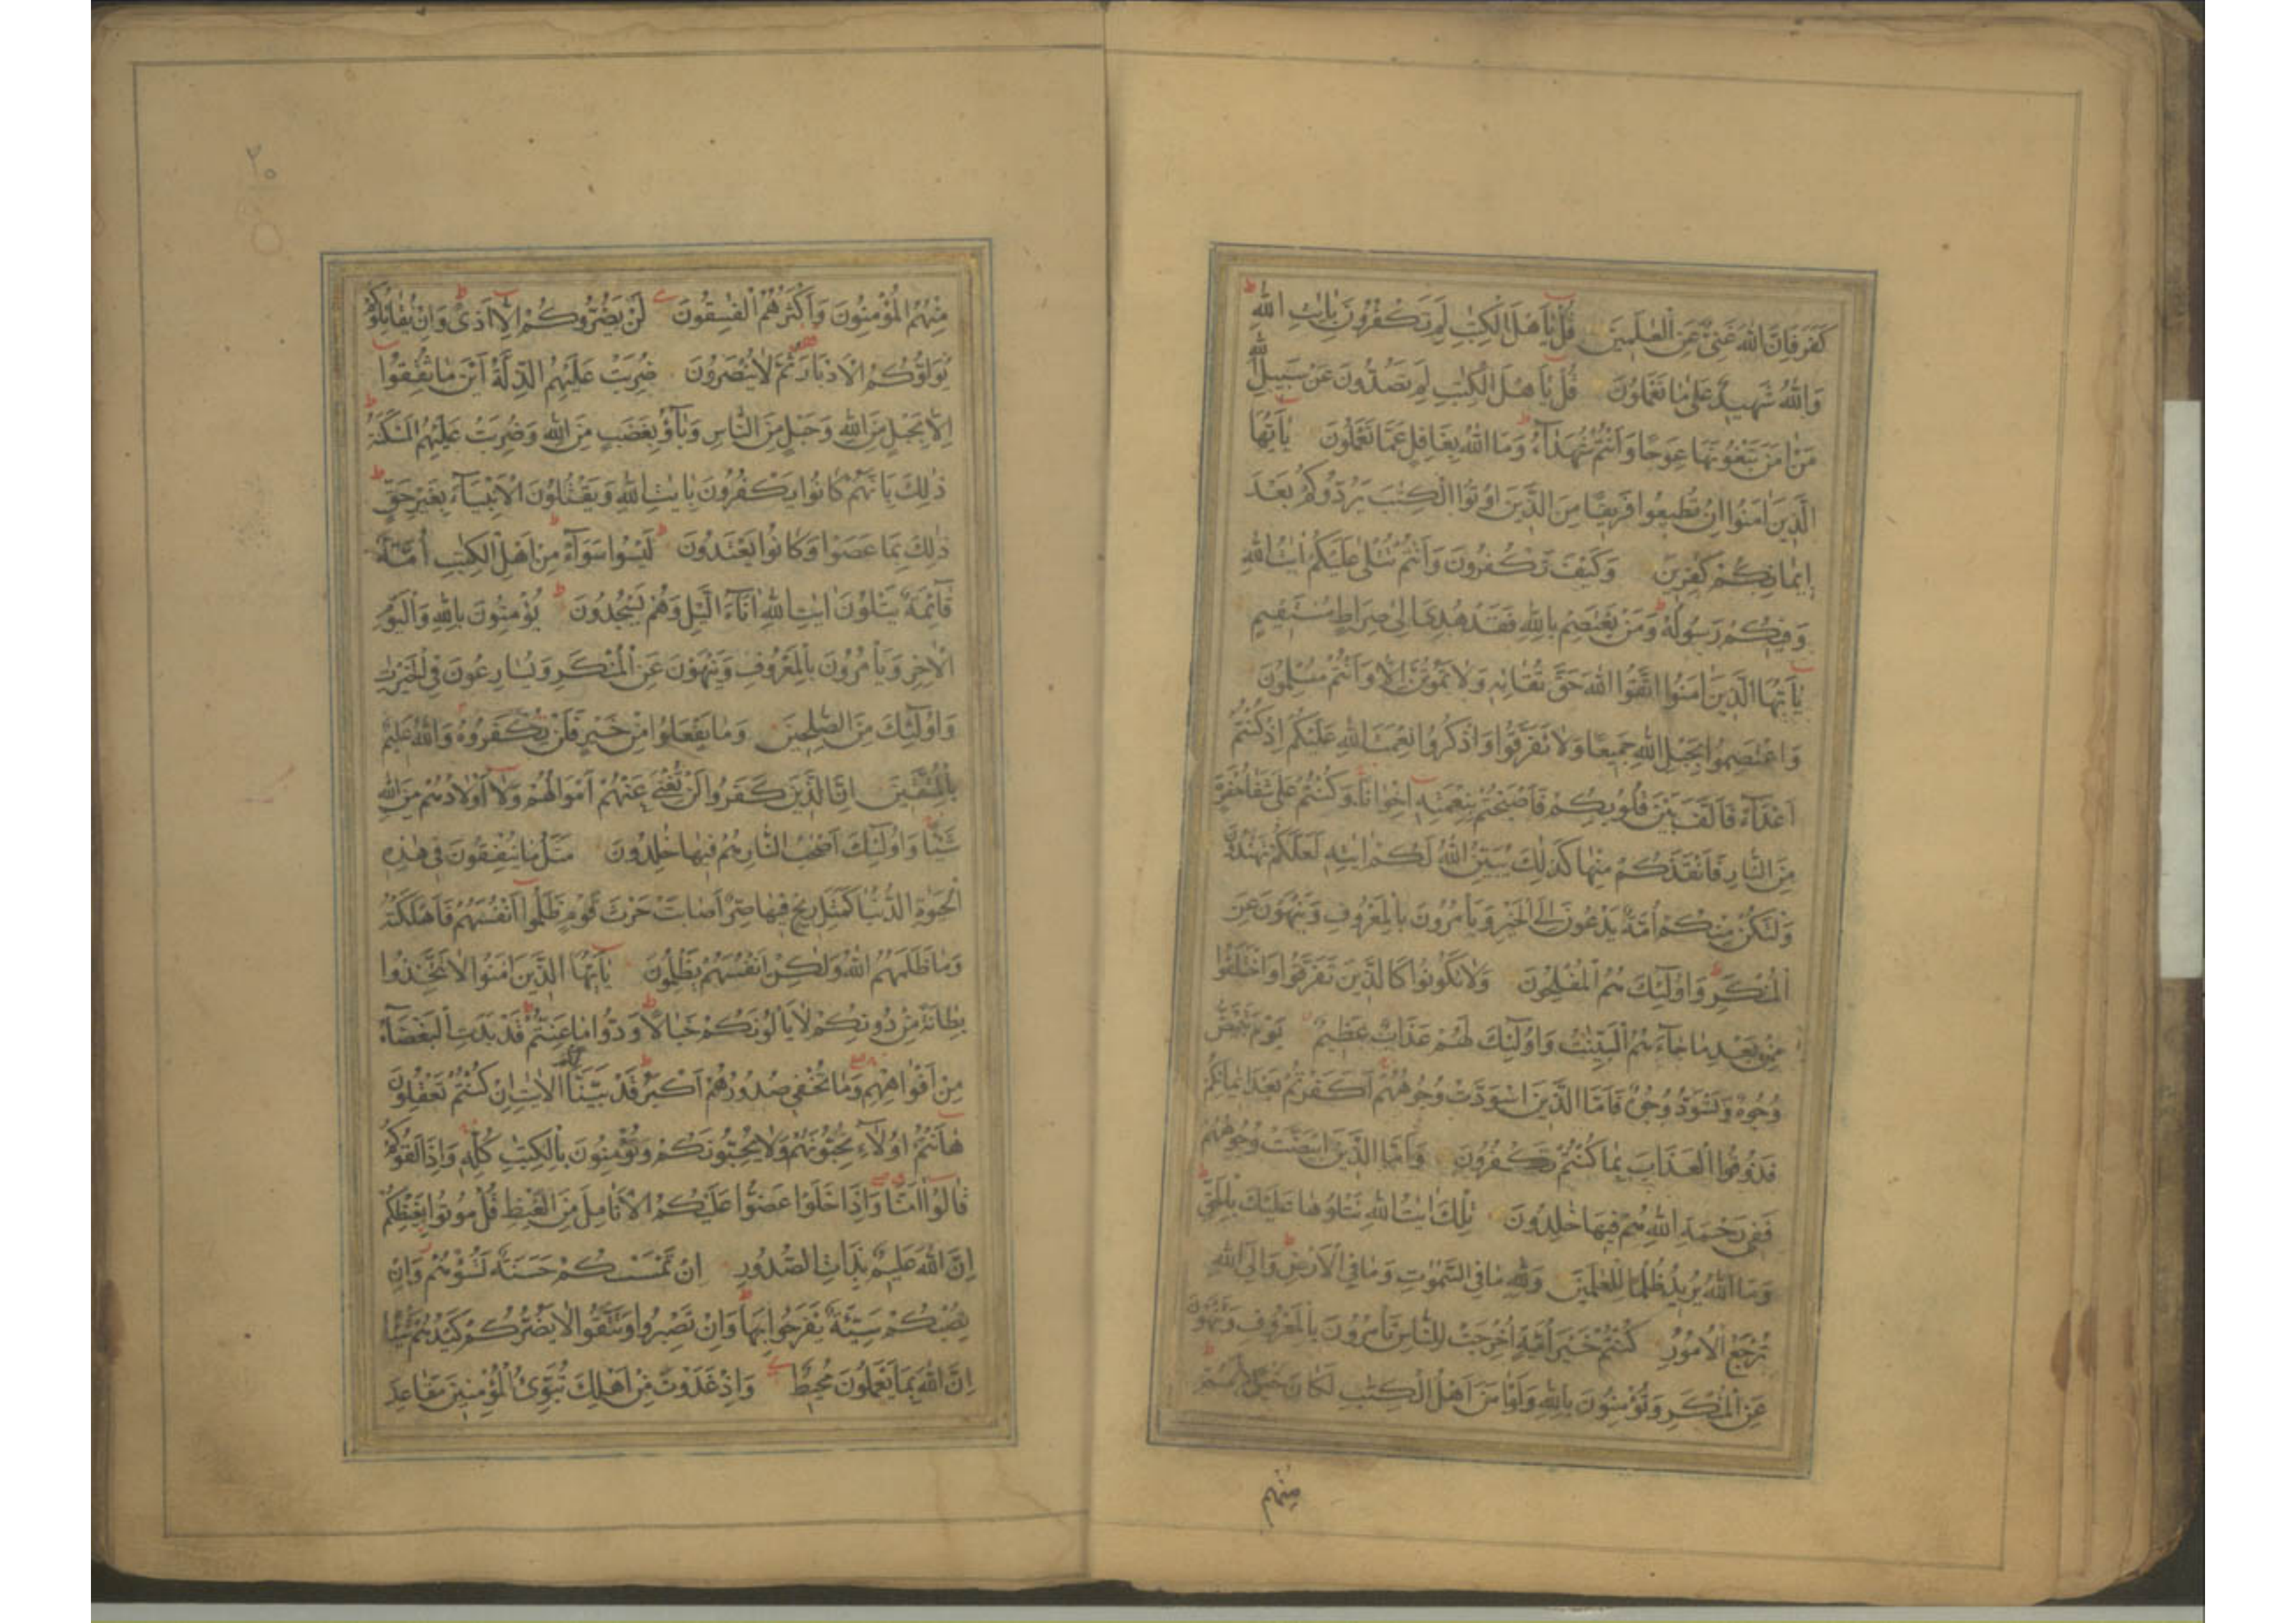 كَفَرَ فَاِنَّ اللّٰهَ غَنِىٌّ عَنِ الْعٰلَمِينَ قُلْ يٰاَهْلَ الْكِتٰبِ لِمَ تَكْفُرُونَ بِاٰيٰتِ اللّٰهِ
وَاللّٰهُ شَهِيدٌ عَلٰى مٰا تَعْمَلُونَ قُلْ يٰاَهْلَ الْكِتٰبِ لِمَ تَصُدُّونَ عَنْ سَبِيلِ اللّٰهِ
مَنْ اٰمَنَ تَبْغُونَهٰا عِوَجًا وَاَنْتُمْ شُهَدٰٓاءُ وَمَا اللّٰهُ بِغٰافِلٍ عَمَّا تَعْمَلُونَ يٰٓاَيُّهَا
الَّذِينَ اٰمَنُوا اِنْ تُطِيعُوا فَرِيقًا مِنَ الَّذِينَ اُوتُوا الْكِتٰبَ يَرُدُّوكُمْ بَعْدَ
اِيمٰانِكُمْ كٰفِرِينَ وَكَيْفَ تَكْفُرُونَ وَاَنْتُمْ تُتْلٰى عَلَيْكُمْ اٰيٰتُ اللّٰهِ
وَفِيكُمْ رَسُولُهُ وَمَنْ يَعْتَصِمْ بِاللّٰهِ فَقَدْ هُدِىَ اِلٰى صِرٰاطٍ مُسْتَقِيمٍ
يٰٓاَيُّهَا الَّذِينَ اٰمَنُوا اتَّقُوا اللّٰهَ حَقَّ تُقٰاتِهِ وَلٰا تَمُوتُنَّ اِلّٰا وَاَنْتُمْ مُسْلِمُونَ
وَاعْتَصِمُوا بِحَبْلِ اللّٰهِ جَمِيعًا وَلٰا تَفَرَّقُوا وَاذْكُرُوا نِعْمَتَ اللّٰهِ عَلَيْكُمْ اِذْ كُنْتُمْ
اَعْدٰٓاءً فَاَلَّفَ بَيْنَ قُلُوبِكُمْ فَاَصْبَحْتُمْ بِنِعْمَتِهِ اِخْوٰانًا وَكُنْتُمْ عَلٰى شَفٰا حُفْرَةٍ
مِنَ النّٰارِ فَاَنْقَذَكُمْ مِنْهٰا كَذٰلِكَ يُبَيِّنُ اللّٰهُ لَكُمْ اٰيٰتِهِ لَعَلَّكُمْ تَهْتَدُونَ
وَلْتَكُنْ مِنْكُمْ اُمَّةٌ يَدْعُونَ اِلَى الْخَيْرِ وَيَاْمُرُونَ بِالْمَعْرُوفِ وَيَنْهَوْنَ عَنِ
الْمُنْكَرِ وَاُولٰٓئِكَ هُمُ الْمُفْلِحُونَ وَلٰا تَكُونُوا كَالَّذِينَ تَفَرَّقُوا وَاخْتَلَفُوا
مِنْ بَعْدِ مٰا جٰٓاءَهُمُ الْبَيِّنٰتُ وَاُولٰٓئِكَ لَهُمْ عَذٰابٌ عَظِيمٌ يَوْمَ تَبْيَضُّ
وُجُوهٌ وَتَسْوَدُّ وُجُوهٌ فَاَمَّا الَّذِينَ اسْوَدَّتْ وُجُوهُهُمْ اَكَفَرْتُمْ بَعْدَ اِيمٰانِكُمْ
فَذُوقُوا الْعَذٰابَ بِمٰا كُنْتُمْ تَكْفُرُونَ وَاَمَّا الَّذِينَ ابْيَضَّتْ وُجُوهُهُمْ
فَفِى رَحْمَةِ اللّٰهِ هُمْ فِيهٰا خٰلِدُونَ تِلْكَ اٰيٰتُ اللّٰهِ نَتْلُوهٰا عَلَيْكَ بِالْحَقِّ
وَمَا اللّٰهُ يُرِيدُ ظُلْمًا لِلْعٰلَمِينَ وَلِلّٰهِ مٰا فِى السَّمٰوٰتِ وَمٰا فِى الْاَرْضِ وَاِلَى اللّٰهِ
تُرْجَعُ الْاُمُورُ كُنْتُمْ خَيْرَ اُمَّةٍ اُخْرِجَتْ لِلنّٰاسِ تَاْمُرُونَ بِالْمَعْرُوفِ وَتَنْهَوْنَ
عَنِ الْمُنْكَرِ وَتُؤْمِنُونَ بِاللّٰهِ وَلَوْ اٰمَنَ اَهْلُ الْكِتٰبِ لَكٰانَ خَيْرًا لَهُمْ
مِنْهُمُ
٢٠
مِنْهُمُ الْمُؤْمِنُونَ وَاَكْثَرُهُمُ الْفٰسِقُونَ لَنْ يَضُرُّوكُمْ اِلّٰٓا اَذًى وَاِنْ يُقٰاتِلُوكُمْ
يُوَلُّوكُمُ الْاَدْبٰارَ ثُمَّ لٰا يُنْصَرُونَ ضُرِبَتْ عَلَيْهِمُ الذِّلَّةُ اَيْنَ مٰا ثُقِفُوٓا
اِلّٰا بِحَبْلٍ مِنَ اللّٰهِ وَحَبْلٍ مِنَ النّٰاسِ وَبٰٓاؤُ بِغَضَبٍ مِنَ اللّٰهِ وَضُرِبَتْ عَلَيْهِمُ الْمَسْكَنَةُ
ذٰلِكَ بِاَنَّهُمْ كٰانُوا يَكْفُرُونَ بِاٰيٰتِ اللّٰهِ وَيَقْتُلُونَ الْاَنْبِيٰٓاءَ بِغَيْرِ حَقٍّ
ذٰلِكَ بِمٰا عَصَوْا وَكٰانُوا يَعْتَدُونَ لَيْسُوا سَوٰٓاءً مِنْ اَهْلِ الْكِتٰبِ اُمَّةٌ
قٰٓائِمَةٌ يَتْلُونَ اٰيٰتِ اللّٰهِ اٰنٰٓاءَ الَّيْلِ وَهُمْ يَسْجُدُونَ يُؤْمِنُونَ بِاللّٰهِ وَالْيَوْمِ
الْاٰخِرِ وَيَاْمُرُونَ بِالْمَعْرُوفِ وَيَنْهَوْنَ عَنِ الْمُنْكَرِ وَيُسٰارِعُونَ فِى الْخَيْرٰتِ
وَاُولٰٓئِكَ مِنَ الصّٰلِحِينَ وَمٰا يَفْعَلُوا مِنْ خَيْرٍ فَلَنْ يُكْفَرُوهُ وَاللّٰهُ عَلِيمٌ
بِالْمُتَّقِينَ اِنَّ الَّذِينَ كَفَرُوا لَنْ تُغْنِىَ عَنْهُمْ اَمْوٰالُهُمْ وَلٰٓا اَوْلٰادُهُمْ مِنَ اللّٰهِ
شَيْئًا وَاُولٰٓئِكَ اَصْحٰبُ النّٰارِ هُمْ فِيهٰا خٰلِدُونَ مَثَلُ مٰا يُنْفِقُونَ فِى هٰذِهِ
الْحَيٰوةِ الدُّنْيٰا كَمَثَلِ رِيحٍ فِيهٰا صِرٌّ اَصٰابَتْ حَرْثَ قَوْمٍ ظَلَمُوٓا اَنْفُسَهُمْ فَاَهْلَكَتْهُ
وَمٰا ظَلَمَهُمُ اللّٰهُ وَلٰكِنْ اَنْفُسَهُمْ يَظْلِمُونَ يٰٓاَيُّهَا الَّذِينَ اٰمَنُوا لٰا تَتَّخِذُوا
بِطٰانَةً مِنْ دُونِكُمْ لٰا يَاْلُونَكُمْ خَبٰالًا وَدُّوا مٰا عَنِتُّمْ قَدْ بَدَتِ الْبَغْضٰٓاءُ
مِنْ اَفْوٰاهِهِمْ وَمٰا تُخْفِى صُدُورُهُمْ اَكْبَرُ قَدْ بَيَّنّٰا لَكُمُ الْاٰيٰتِ اِنْ كُنْتُمْ تَعْقِلُونَ
هٰٓاَنْتُمْ اُولٰٓاءِ تُحِبُّونَهُمْ وَلٰا يُحِبُّونَكُمْ وَتُؤْمِنُونَ بِالْكِتٰبِ كُلِّهِ وَاِذٰا لَقُوكُمْ
قٰالُوٓا اٰمَنّٰا وَاِذٰا خَلَوْا عَضُّوا عَلَيْكُمُ الْاَنٰامِلَ مِنَ الْغَيْظِ قُلْ مُوتُوا بِغَيْظِكُمْ
اِنَّ اللّٰهَ عَلِيمٌ بِذٰاتِ الصُّدُورِ اِنْ تَمْسَسْكُمْ حَسَنَةٌ تَسُؤْهُمْ وَاِنْ
تُصِبْكُمْ سَيِّئَةٌ يَفْرَحُوا بِهٰا وَاِنْ تَصْبِرُوا وَتَتَّقُوا لٰا يَضُرُّكُمْ كَيْدُهُمْ شَيْئًا
اِنَّ اللّٰهَ بِمٰا يَعْمَلُونَ مُحِيطٌ وَاِذْ غَدَوْتَ مِنْ اَهْلِكَ تُبَوِّئُ الْمُؤْمِنِينَ مَقٰاعِدَ